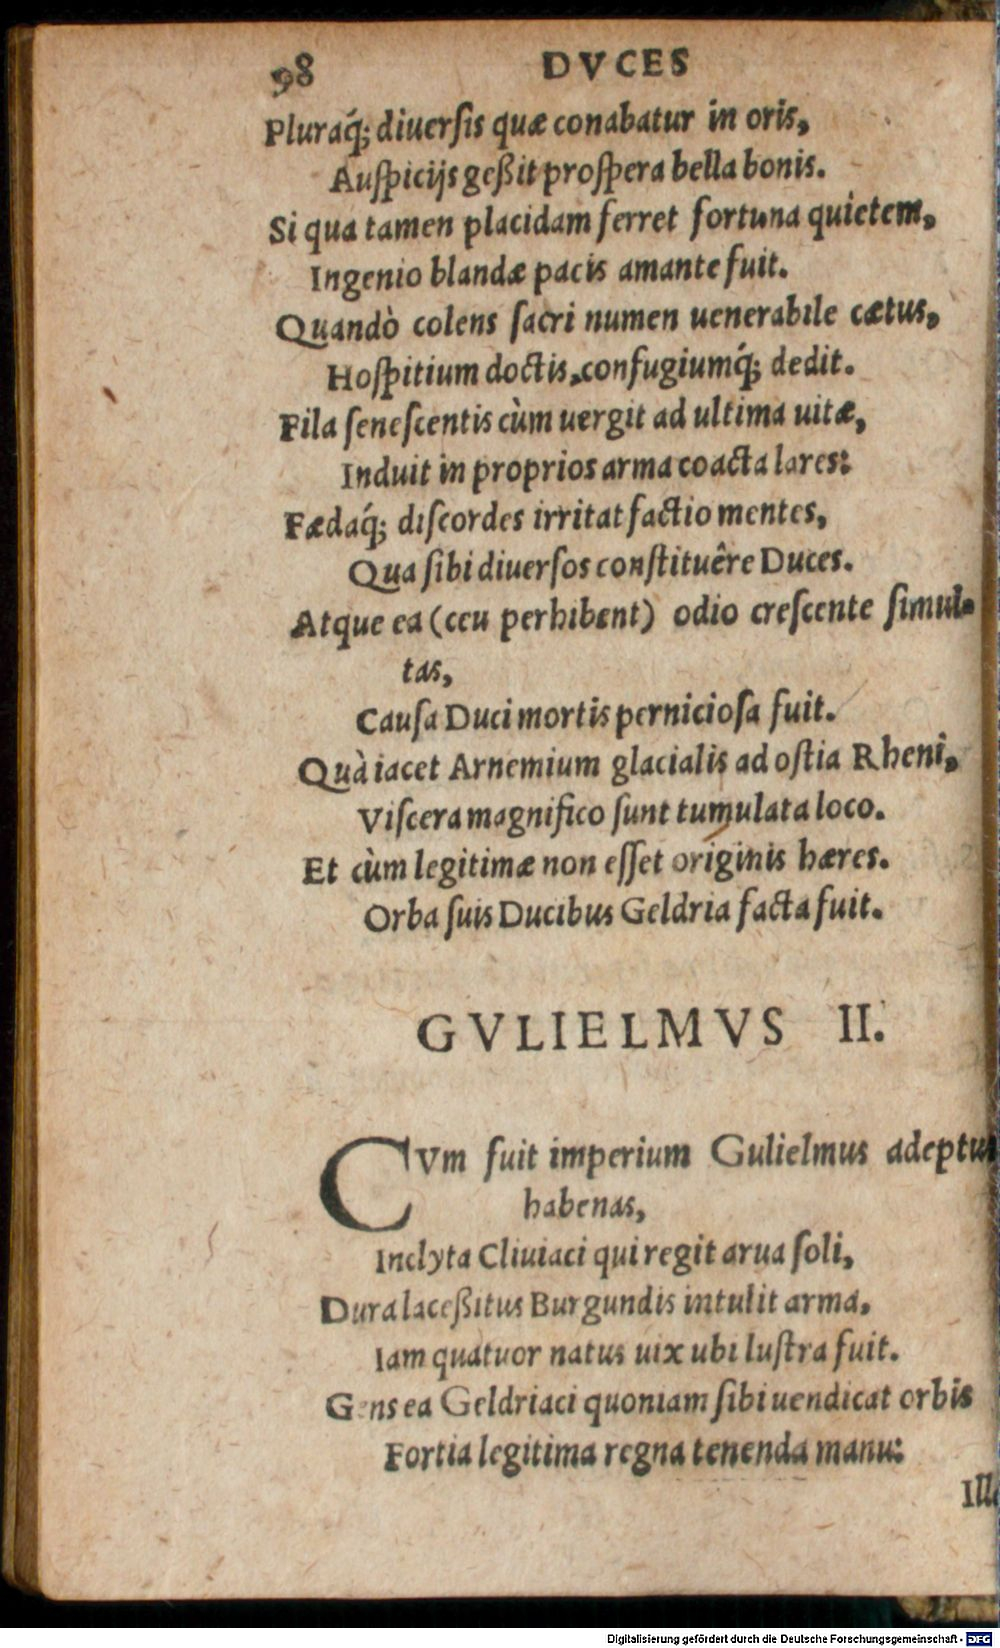 98 DVCES
Pluraq́; diuerſis quæ conabatur in oris,
Auſpicijs geßit proſpera bella bonis.
Si qua tamen placidam ferret fortuna quietem,
Ingenio blandæ pacis amante fuit.
Quandò colens ſacri numen uenerabile cætus,
Hoſpitium doctis, confugiumq́; dedit.
Fila ſeneſcentis cùm uergit ad ultima uitæ,
Induit in proprios arma coacta lares:
Fædaq́; diſcordes irritat factio mentes,
Qua ſibi diuerſos conſtituêre Duces.
Atque ea (ceu perhibent) odio creſcente ſimul-
tas,
Cauſa Duci mortis pernicioſa fuit.
Quà iacet Arnemium glacialis ad oſtia Rheni,
Viſcera magnifico ſunt tumulata loco.
Et cùm legitimæ non eſſet originis hæres.
Orba ſuis Ducibus Geldria facta fuit.
GVLIELMVS II.
CVm fuit imperium Gulielmus adeptus
habenas,
Inclyta Cliuiaci qui regit arua ſoli,
Dura laceßitus Burgundis intulit arma,
Iam quatuor natus uix ubi luſtra fuit.
Gens ea Geldriaci quoniam ſibi uendicat orbis
Fortia legitima regna tenenda manu:
Digitalisierung gefördert durch die Deutsche Forschungsgemeinschaft - DFG